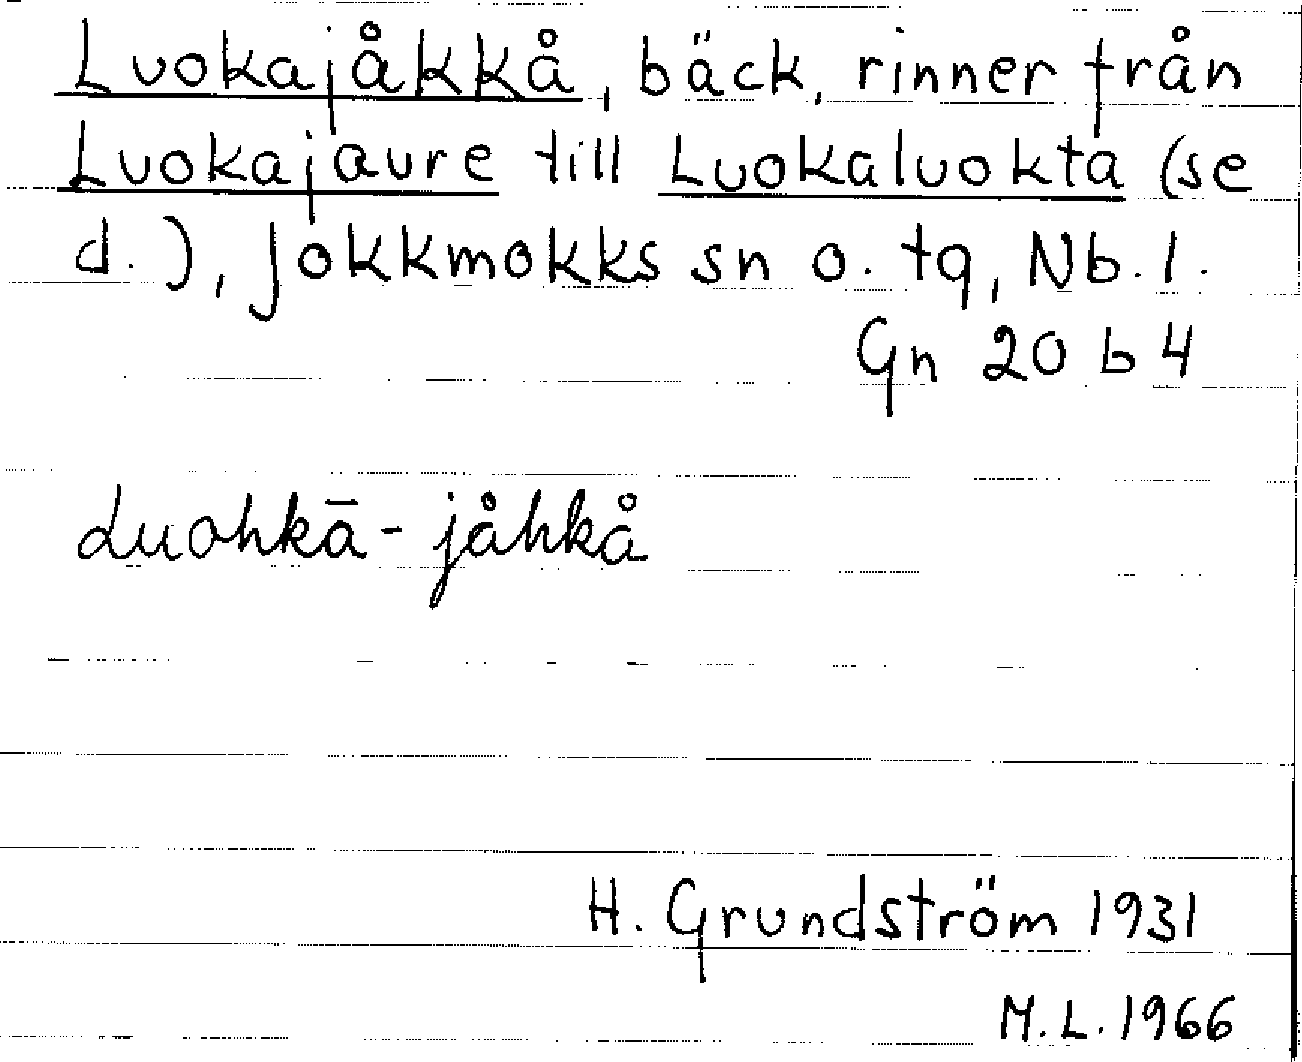 Luokajåkkå, bäck, rinner från
Luokajaure till Luokaluokta (se
d.), Jokkmokks sn o. tg, Nb. l.
Gn 20 b 4
Luohkā-jåhkå
H. Grundström 1931
M.L. 1966